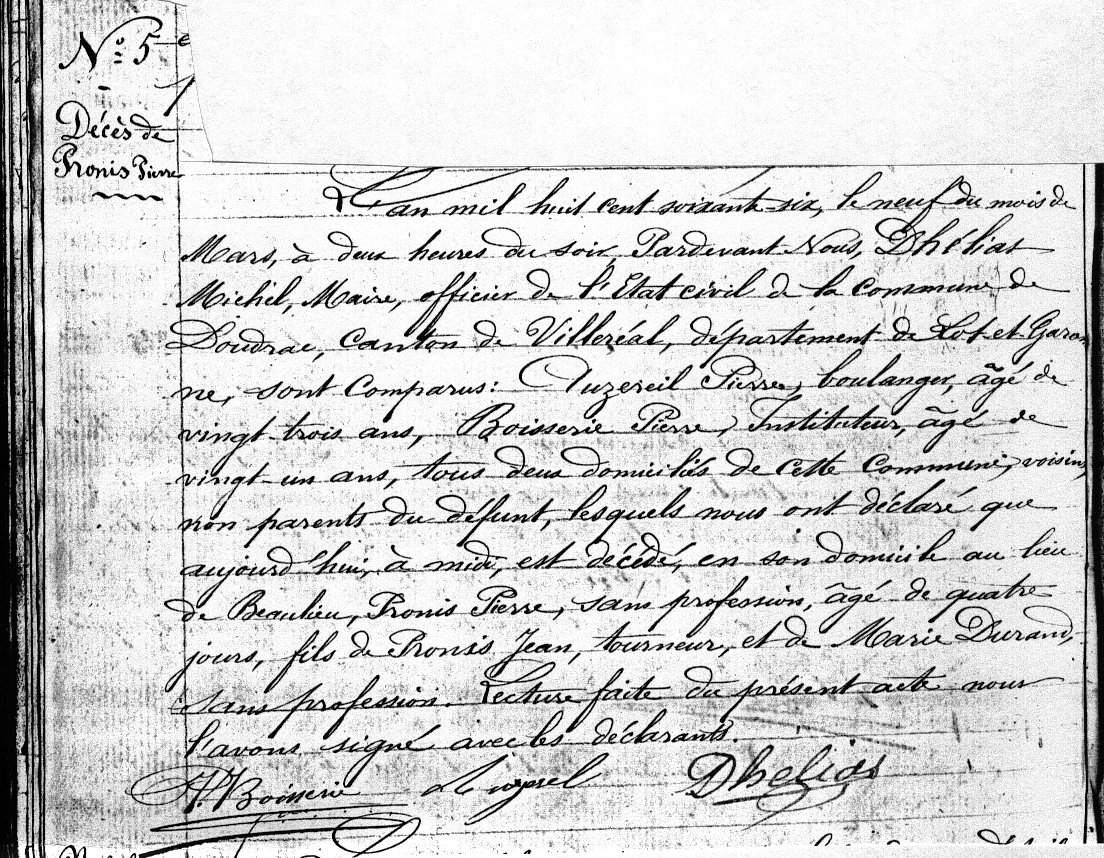 N.º 5
Décès de
Pronis Pierre
L'an mil huit cent soixante-six, le neuf du mois de
Mars, à deux heures du soir, Pardevant Nous, Dhélias
Michel, Maire, officier de l'Etat civil de la Commune de
Doudrac, Canton de Villeréal, département de Lot et Garon
ne, sont Comparus: Auzereil Pierre, boulanger, âgé de
vingt trois ans, Boisserie Pierre, Instituteur, âgé de
vingt-un ans, tous deux domiciliés de cette Commune, voisins,
non parents du défunt, lesquels nous ont déclaré que
aujourd'hui, à midi, est décédé, en son domicile au lieu
de Beaulieu, Pronis Pierre, sans profession, âgé de quatre
jours, fils de Pronis Jean, tourneur, et de Marie Durand,
sans profession. Lecture faite du présent acte nous
l'avons signé avec les déclarants.
P. Boisserie Dhelias